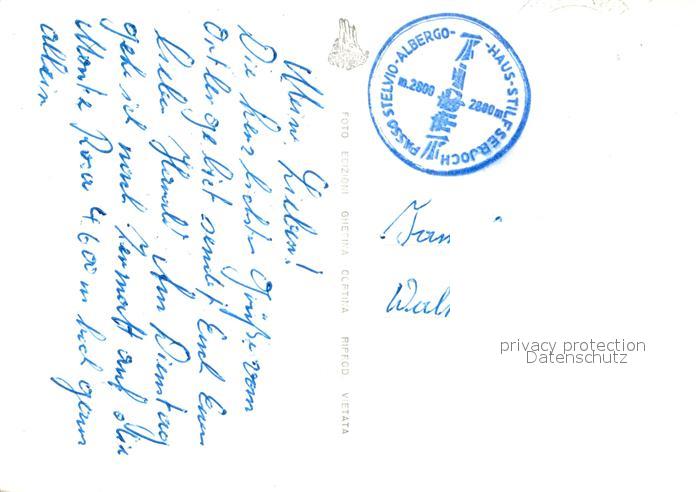 Meine Lieben!
Die herzlichsten Grüße vom
Ortlergebiet sendet Euch Euer
lieber Harald. Am Dienstag
gehe ich nach Zermatt auf die
Monte Rosa 4600 m hoch ganz
allein
FOTO EDIZIONI GHEDINA CORTINA RIPROD. VIETATA
PASSO STELVIO - ALBERGO - - HAUS - STILFSERJOCH
m. 2800
2800 m
Fam
privacy protection
Datenschutz